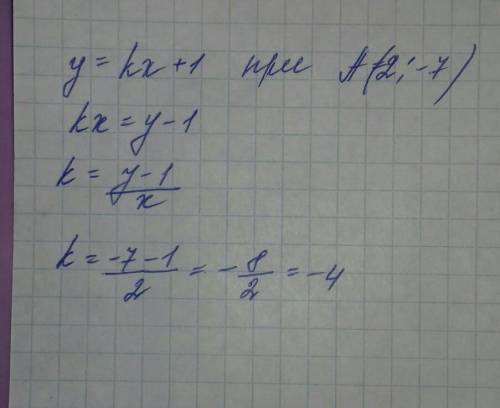 y = kx + 1 при A(2; -7)
kx = y - 1
k = \frac{y - 1}{x}
k = \frac{-7 - 1}{2} = -\frac{8}{2} = -4